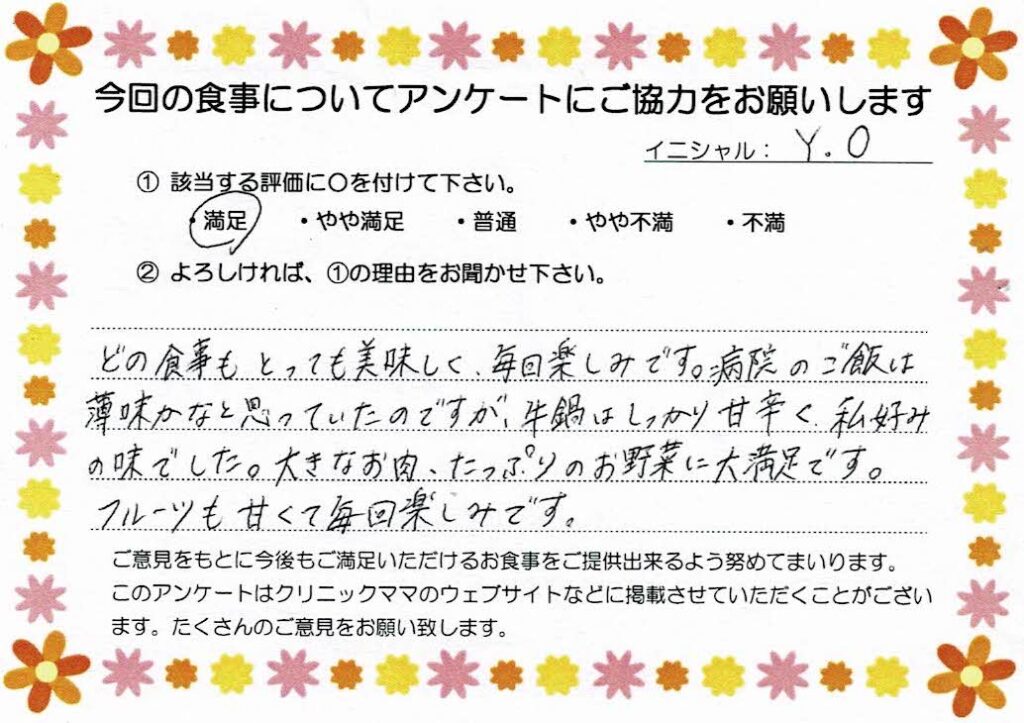 今回の食事についてアンケートにご協力をお願いします
イニシャル： Y.O
① 該当する評価に〇を付けて下さい。
・満足 ・やや満足 ・普通 ・やや不満 ・不満
② よろしければ、①の理由をお聞かせ下さい。
どの食事もとっても美味しく、毎回楽しみです。病院のご飯は
薄味かなと思っていたのですが、牛鍋はしっかり甘辛く、私好み
の味でした。大きなお肉、たっぷりのお野菜に大満足です。
フルーツも甘くて毎回楽しみです。
ご意見をもとに今後もご満足いただけるお食事をご提供出来るよう努めてまいります。
このアンケートはクリニックママのウェブサイトなどに掲載させていただくことがござい
ます。たくさんのご意見をお願い致します。